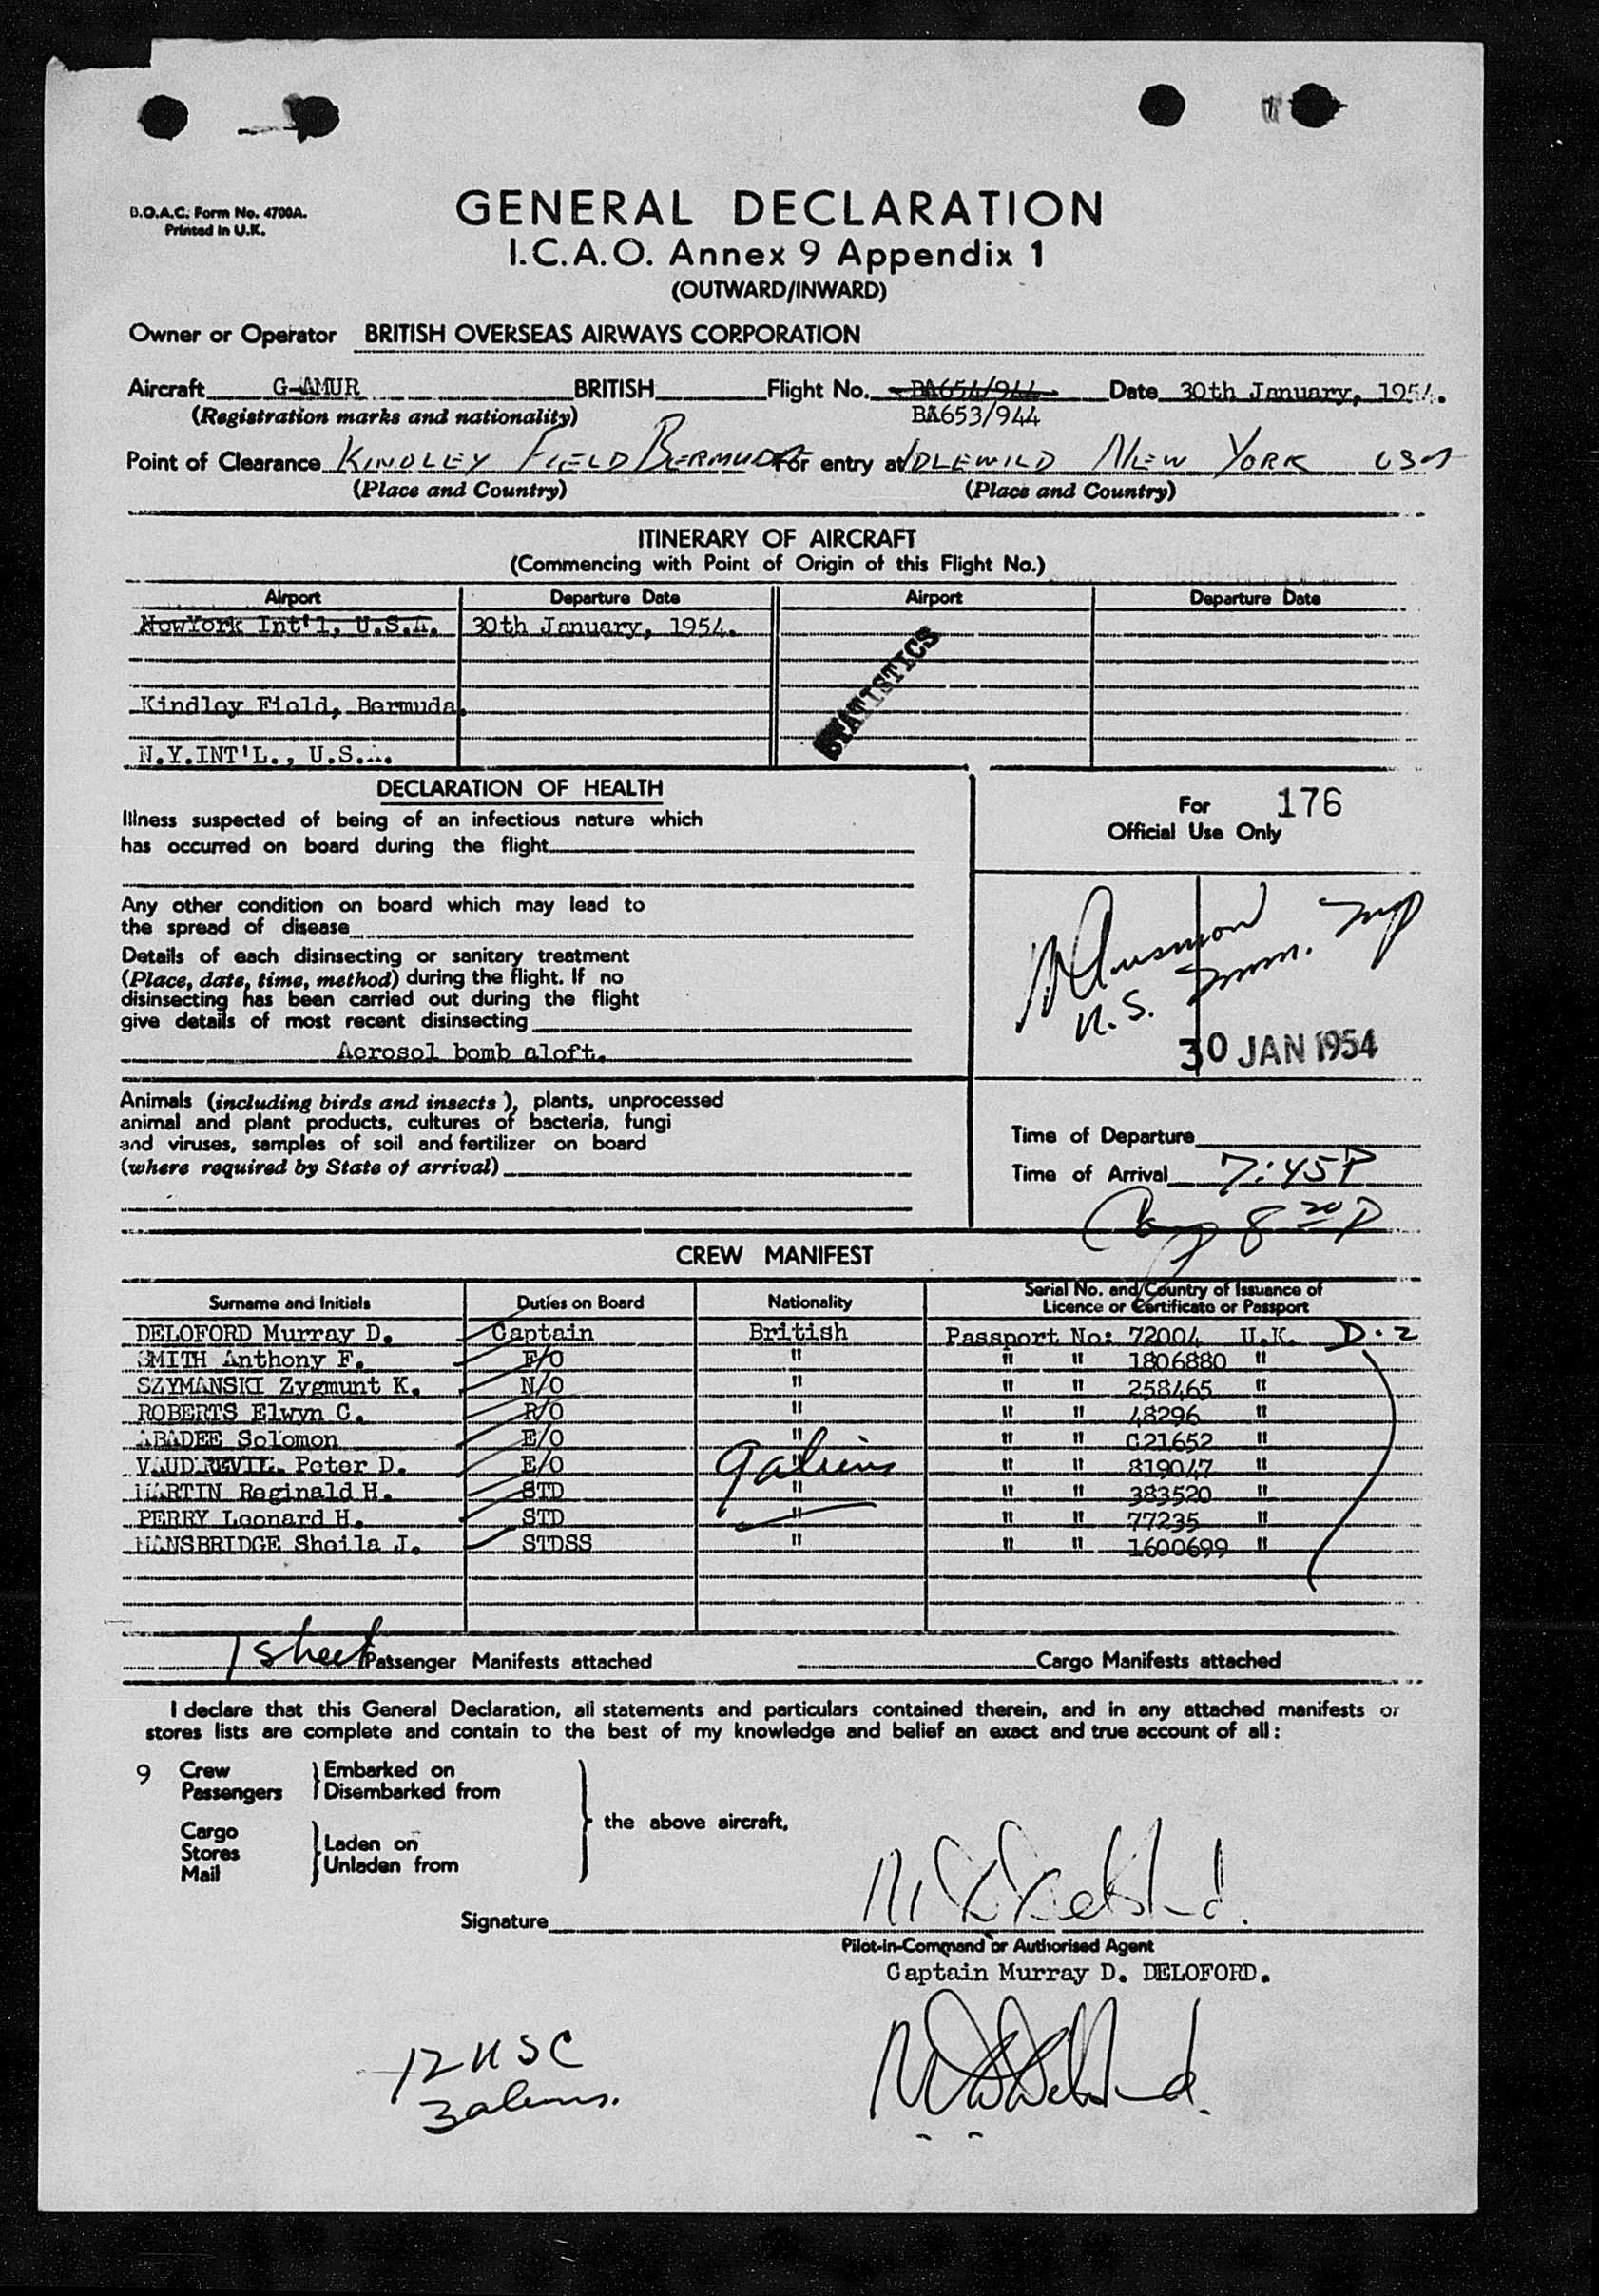 B.O.A.C. Form No. 4700A.
Printed in U.K.
GENERAL DECLARATION
I.C.A.O. Annex 9 Appendix 1
(OUTWARD/INWARD)
Owner or Operator BRITISH OVERSEAS AIRWAYS CORPORATION
Aircraft G-AMUR BRITISH Flight No. BA654/944 Date 30th January, 1954.
(Registration marks and nationality) BA653/944
Point of Clearance KINDLEY FIELD BERMUDA For entry at IDLEWILD NEW YORK USA
(Place and Country) (Place and Country)
ITINERARY OF AIRCRAFT
(Commencing with Point of Origin of this Flight No.)
Airport Departure Date Airport Departure Date
NewYork Int'l, U.S.A. 30th January, 1954.
STATISTICS
Kindley Field, Bermuda.
N.Y.INT'L., U.S.A.
DECLARATION OF HEALTH
Illness suspected of being of an infectious nature which
has occurred on board during the flight
Any other condition on board which may lead to
the spread of disease
Details of each disinsecting or sanitary treatment
(Place, date, time, method) during the flight. If no
disinsecting has been carried out during the flight
give details of most recent disinsecting
Aerosol bomb aloft.
Animals (including birds and insects), plants, unprocessed
animal and plant products, cultures of bacteria, fungi
and viruses, samples of soil and fertilizer on board
(where required by State of arrival)
For 176
Official Use Only
U.S. Imm. Insp
30 JAN 1954
Time of Departure
Time of Arrival 7:45P
8 20 P
CREW MANIFEST
Surname and Initials Duties on Board Nationality Serial No. and Country of Issuance of Licence or Certificate or Passport
DELOFORD Murray D. Captain British Passport No: 72004 U.K. D-2
SMITH Anthony F. F/O " " " 1806880 "
SZYMANSKI Zygmunt K. N/O " " " 258465 "
ROBERTS Elwyn C. R/O " " " 48296 "
ABADEE Solomon E/O " " " C21652 "
VAUDREVIL. Peter D. E/O " " " 819047 "
9 aliens
MARTIN Reginald H. STD " " " 383520 "
PERRY Leonard H. STD " " " 77235 "
MANSBRIDGE Sheila J. STDSS " " " 1600699 "
1 sheet Passenger Manifests attached Cargo Manifests attached
I declare that this General Declaration, all statements and particulars contained therein, and in any attached manifests or
stores lists are complete and contain to the best of my knowledge and belief an exact and true account of all:
9 Crew Embarked on
Passengers Disembarked from
the above aircraft.
Cargo
Stores Laden on
Mail Unladen from
Signature
Pilot-in-Command or Authorised Agent
Captain Murray D. DELOFORD.
12 USC
3 aliens.